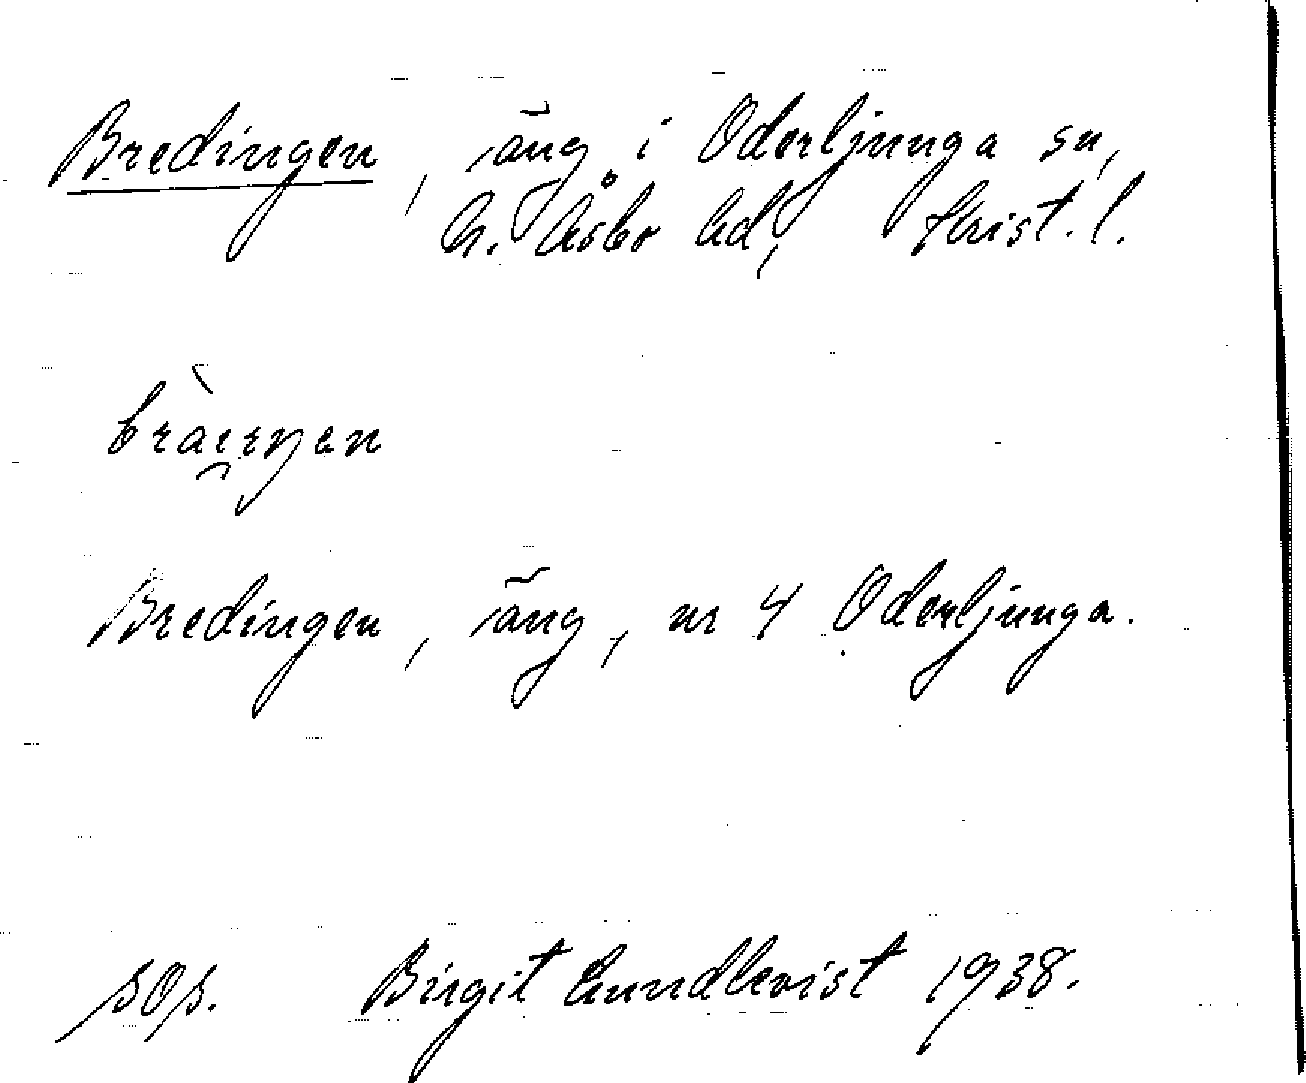 Bredingen, äng i Oderljunga sn,
N. Åsbo hd, Krist. l.
Bredingen, äng, nr 4 Oderljunga.
sop. Birgit Lundkvist 1938.